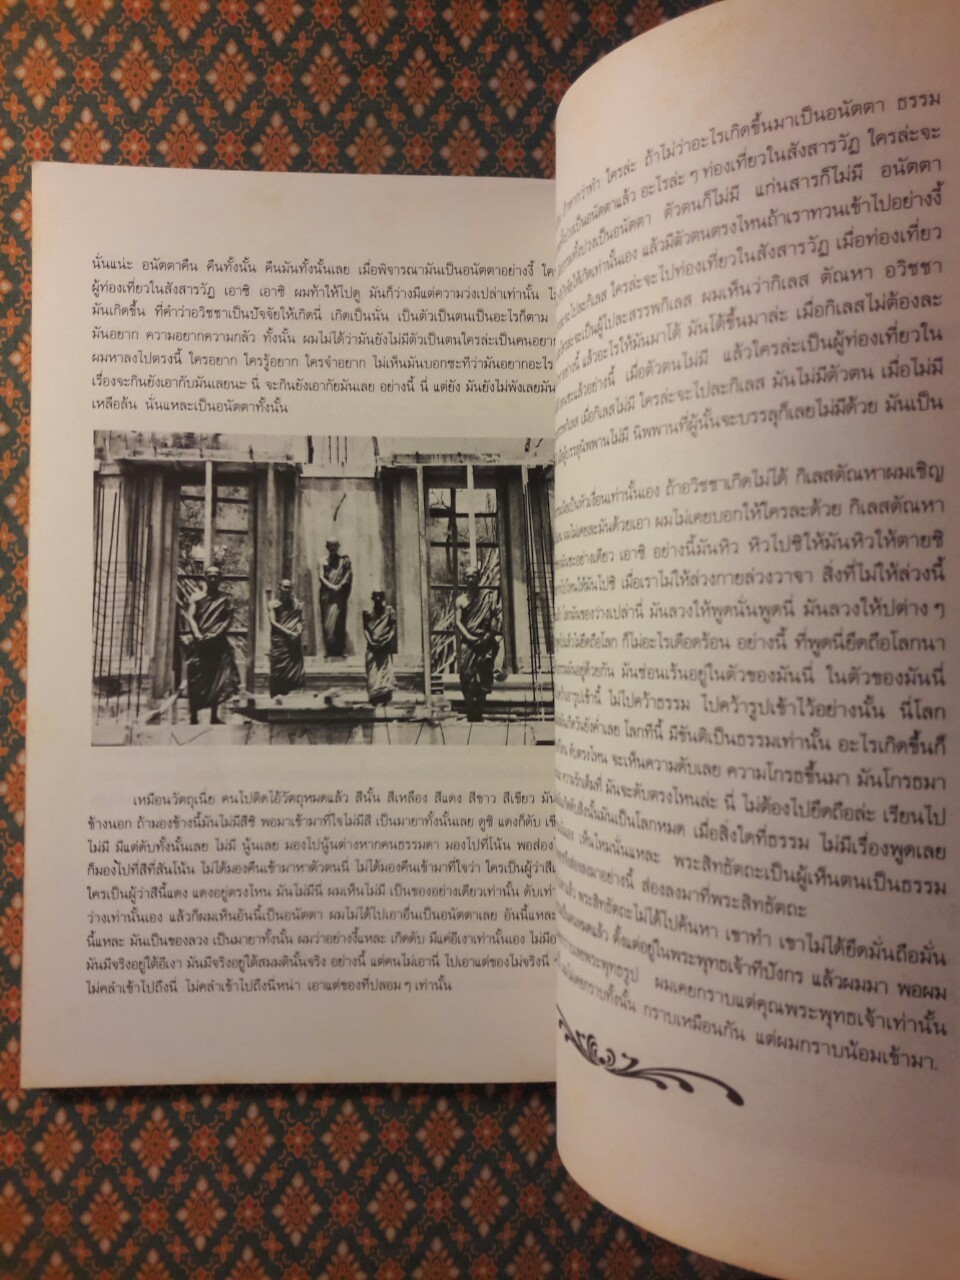 นั่นแน่ะ อนัตตาคืน คืนทั้งนั้น คืนมันทั้งนั้นเลย เมื่อพิจารณามันเป็นอนัตตาอย่างงี้
ผู้ท่องเที่ยวในสังสารวัฏ เอาซิ เอาซิ ผมท้าให้ไปดู มันก็ว่างมีแต่ความว่งเปล่าเท่านั้น
มันเกิดขึ้น ที่คำว่าอวิชชาเป็นปัจจัยให้เกิดนี่ เกิดเป็นนั่น เป็นตัวเป็นตนเป็นอะไรก็ตาม
มันอยาก ความอยากความกลัว ทั้งนั้น ผมไม่ได้ว่ามันยังไม่มีตัวเป็นตนใครล่ะเป็นคนอยาก
ผมหาลงไปตรงนี้ ใครอยาก ใครรู้อยาก ใครจำอยาก ไม่เห็นมันบอกซะทีว่ามันอยากอะไร
เรื่องจะกินยังเอากับมันเลยนะ นี่ จะกินยังเอากัยมันเลย อย่างนี้ นี่ แต่ยัง มันยังไม่พังเลยมัน
เหลือล้น นั่นแหละเป็นอนัตตาทั้งนั้น
เหมือนวัตถุเนี่ย คนไปติดไอ้วัตถุหมดแล้ว สีนั้น สีเหลือง สีแดง สีขาว สีเขียว
ข้างนอก ถ้ามองข้างนี้มันไม่มีสีซิ พอมาเข้ามาที่ใจไม่มีสี เป็นมายาทั้งนั้นเลย ดูซิ แดงก็ดับ
ไม่มี มีแต่ดับทั้งนั้นเลย ไม่มี นู้นเลย มองไปนู้นต่างหากคนธรรมดา มองไปที่โน้น พอส่อง
ก็มองไปที่สีที่สันโน้น ไม่ได้มองคืนเข้ามาหาตัวตนนี่ ไม่ได้มองคืนเข้ามาที่ใจว่า ใครเป็นผู้ว่า
ใครเป็นผู้ว่าสีนี้แดง แดงอยู่ตรงไหน มันไม่มีนี่ ผมเห็นไม่มี เป็นของอย่างเดียวเท่านั้น ดับเท่า
ว่างเท่านั้นเอง แล้วก็ผมเห็นอันนี้เป็นอนัตตา ผมไม่ได้ไปเอาอื่นเป็นอนัตตาเลย อันนี้แหละ
นี้แหละ มันเป็นของลวง เป็นมายาทั้งนั้น ผมว่าอย่างงี้แหละ เกิดดับ มีแค่อีเงาเท่านั้นเอง
มันมีจริงอยู่ไอ้อีเงา มันมีจริงอยู่ไอ้สมมตินั้นจริง อย่างนี้ แต่คนไม่เอานี่ ไปเอาแต่ของไม่จริงนี่
ไม่คลำเข้าไปถึงนี่ ไม่คลำเข้าไปถึงนี่หน่า เอาแต่ของที่ปลอม ๆ เท่านั้น
ใครล่ะ ถ้าไม่ว่าอะไรเกิดขึ้นมาเป็นอนัตตา ธรรม
อะไรล่ะ ๆ ท่องเที่ยวในสังสารวัฏ ใครล่ะจะ
เป็นอนัตตา ตัวตนก็ไม่มี แก่นสารก็ไม่มี อนัตตา
แล้วมีตัวตนตรงไหนถ้าเราทวนเข้าไปอย่างงี้
ใครล่ะจะไปท่องเที่ยวในสังสารวัฏ เมื่อท่องเที่ยว
ผมเห็นว่ากิเลส ตัณหา อวิชชา
แล้วอะไรให้มันมาโด้ มันโด้ขึ้นมาล่ะ เมื่อกิเลสไม่ต้องละ
เมื่อตัวตนไม่มี แล้วใครล่ะเป็นผู้ท่องเที่ยวใน
เมื่อกิเลสไม่มี ใครล่ะจะไปละกิเลส มันไม่มีตัวตน เมื่อไม่มี
นิพพานที่ผู้นั้นจะบรรลุก็เลยไม่มีด้วย มันเป็น
ถ้าอวิชชาเกิดไม่ได้ กิเลสตัณหาผมเชิญ
ผมไม่เคยบอกให้ใครละด้วย กิเลสตัณหา
เอาซิ อย่างนี้มันหิว หิวไปซิให้มันหิวให้ตายซิ
เมื่อเราไม่ให้ล่วงกายล่วงวาจา สิ่งที่ไม่ให้ล่วงนี้
มันลวงให้พูดนั่นพูดนี่ มันลวงให้ปต่าง ๆ
ก็ไม่อะไรเดือดร้อน อย่างนี้ ที่พูดนี่ยึดถือโลกนา
มันซ่อนเร้นอยู่ในตัวของมันนี่ ในตัวของมันนี่
ไม่ไปคว้าธรรม ไปคว้ารูปเข้าไว้อย่างนั้น นี่โลก
โลกทีนี้ มีขันติเป็นธรรมเท่านั้น อะไรเกิดขึ้นก็
จะเห็นความดับเลย ความโกรธขึ้นมา มันโกรธมา
มันจะดับตรงไหนล่ะ นี่ ไม่ต้องไปยึดถือล่ะ เรียนไป
มันเป็นโลกหมด เมื่อสิ่งใดที่ธรรม ไม่มีเรื่องพูดเลย
เห็นไหมนั่นแหละ พระสิทธัตถะเป็นผู้เห็นตนเป็นธรรม
ส่องลงมาที่พระสิทธัตถะ
พระสิทธัตถะไม่ได้ไปค้นหา เขาทำ เขาไม่ได้ยึดมั่นถือมั่น
ตั้งแต่อยู่ในพระพุทธเจ้าทีปังกร แล้วผมมา พอผม
ผมเคยกราบแต่คุณพระพุทธเจ้าเท่านั้น
กราบเหมือนกัน แต่ผมกราบน้อมเข้ามา.